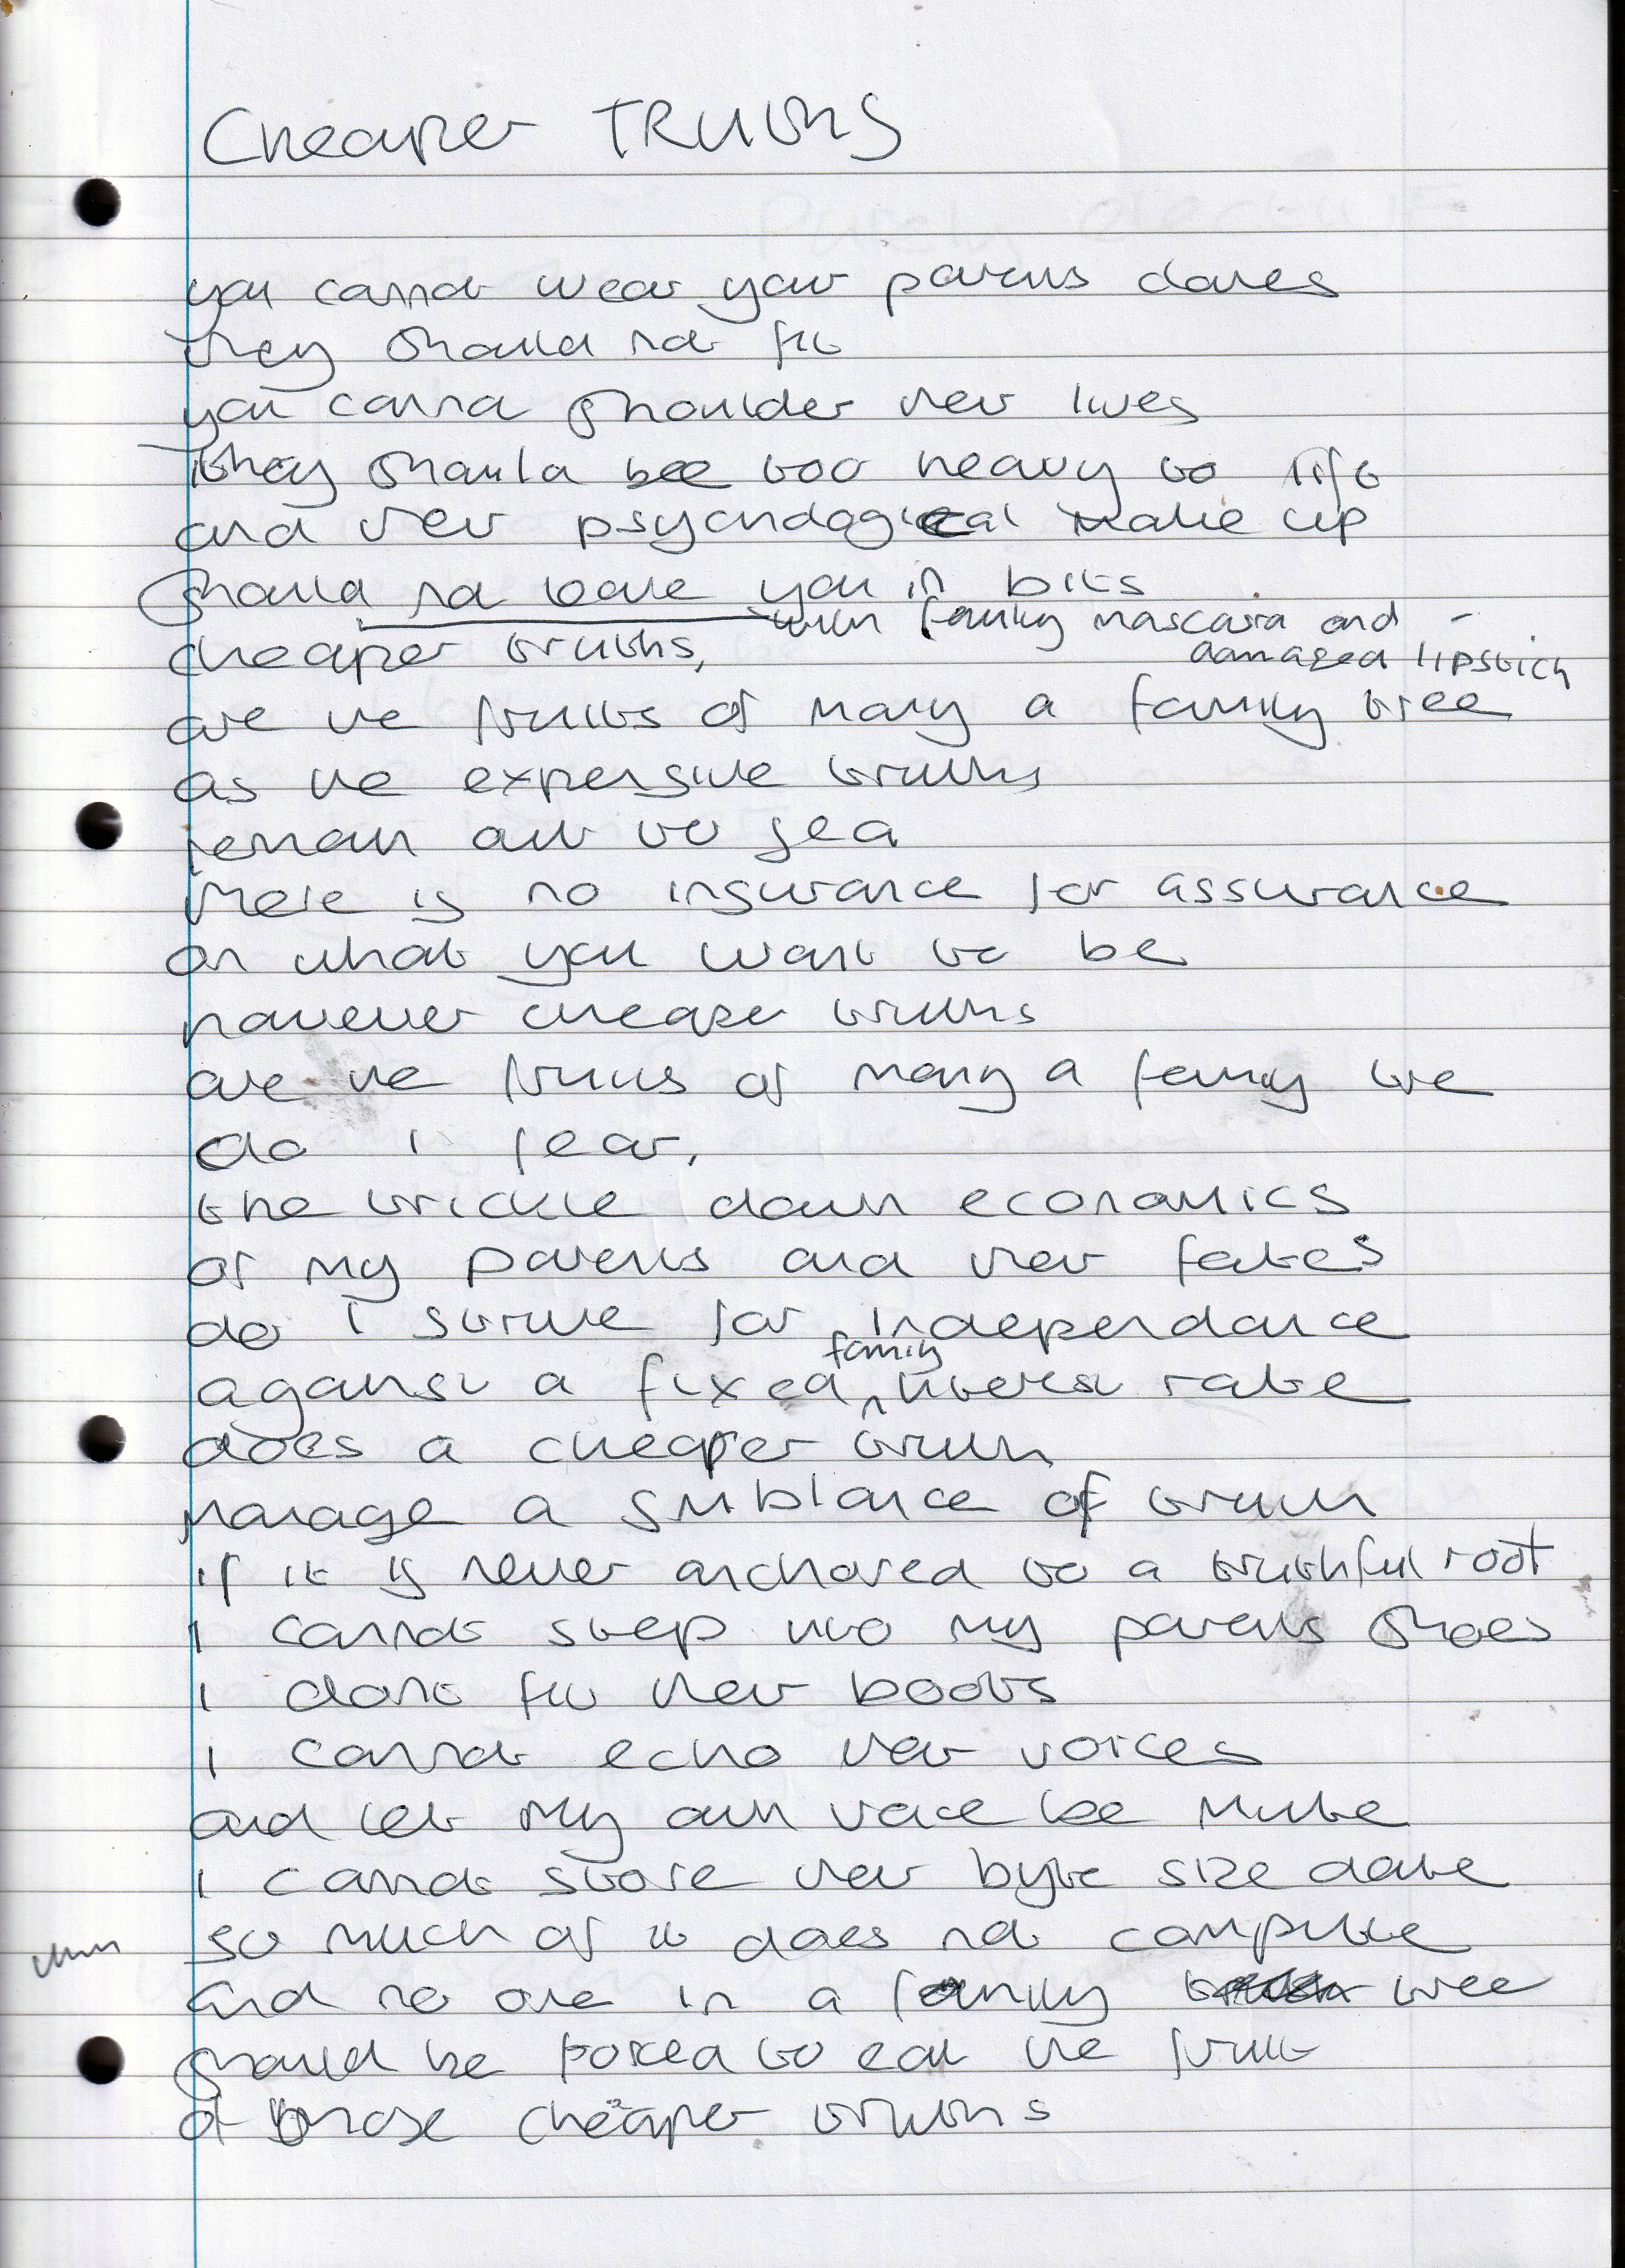 Cheaper TRUths
you cannot wear your parents clothes
they should not fit
you cannot shoulder their lives
They should be too heavy to lift
and their psychological make up
should not leave you in bits
with family mascara and
damaged lipstick
cheaper truths,
are the fruits of many a family tree
as the expensive truths
remain out to sea
there is no insurance for assurance
on what you want to be
however cheaper truths
are the fruits of many a family tree
do i fear,
the trickle down economics
of my parents and their fates
do I strive for independance
against a fixed family interest rate
does a cheaper truth
manage a smblance of truth
if it is never anchored to a truthful root
I cannot step into my parents shoes
I dont fit their boots
I cannot echo their voices
and let my own voice be mute
I cannot store their byte size date
so much of it does not compute
and no one in a family tree
should be forced to eat the fruit
of those cheaper truths